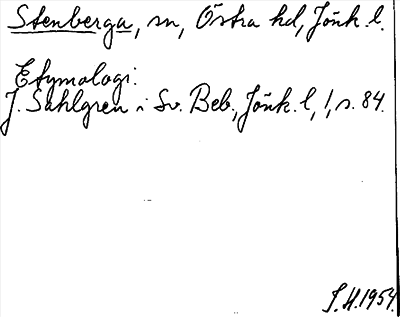 Stenberga, sn, Östra hd, Jönk. l.
Etymologi:
J. Sahlgren i Sv. Beb., Jönk. l, 1, s. 84.
S.H. 1954.